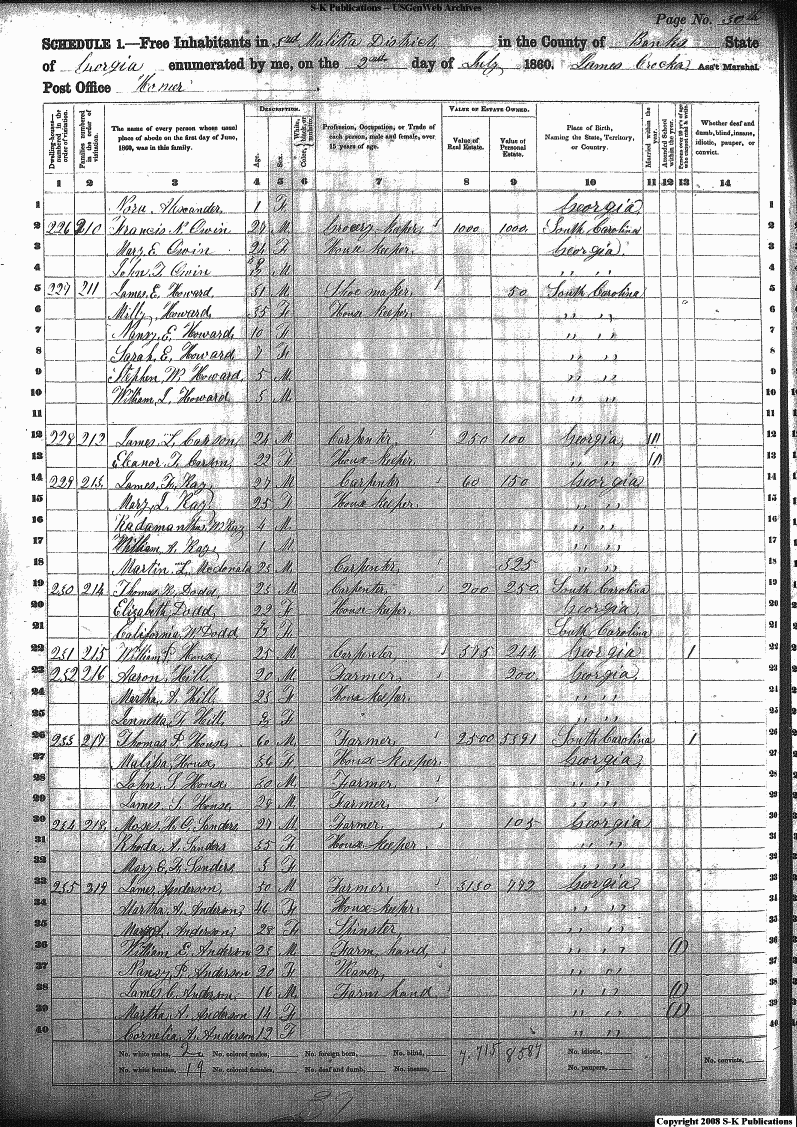 S-K Publications – USGenWeb Archives
Page No. 30th
SCHEDULE 1.—Free Inhabitants in 3rd Malitia District in the County of Banks State
of Georgia enumerated by me, on the 2nd day of July 1860. James Ass't Marshal.
Post Office Homer
Dwelling-houses—numbered in the order of visitation. Families numbered in the order of visitation. The name of every person whose usual place of abode on the first day of June, 1860, was in this family. DESCRIPTION. Age. Sex. Color, White, black, or mulatto. Profession, Occupation, or Trade of each person, male and female, over 15 years of age. VALUE OF ESTATE OWNED. Value of Real Estate. Value of Personal Estate. Place of Birth, Naming the State, Territory, or Country. Married within the year. Attended School within the year. Persons over 20 y'rs of age who cannot read & write. Whether deaf and dumb, blind, insane, idiotic, pauper, or convict.
1 2 3 4 5 6 7 8 9 10 11 12 13 14
1 Alexander 1 F Georgia 1
2 226 210 Francis N. Owin 27 M Grocery keeper 1000 1000 South Carolina 2
3 Mary E Owin 24 F House keeper Georgia 3
4 John T Owin M " " 4
5 227 211 James E. Howard 31 M Shoe maker 50 South Carolina 5
6 Milly Howard 35 F House keeper " " 6
7 Nansy E. Howard 10 F " " 7
8 Sarah E. Howard 7 F " " 8
9 Stephen W. Howard 5 M " " 9
10 William L. Howard 5 M " " 10
11 11
12 228 212 James L. Carson 24 M Carpenter 250 100 Georgia 12
13 Eleanor F. Carson 22 F House keeper " " 13
14 229 213 James H. Ray 27 M Carpenter 60 150 Georgia 14
15 Mary L Ray 25 F House keeper " " 15
16 W Ray 4 M " " 16
17 William A. Ray 1 M " " 17
18 Martin L. Mcdonald 23 M Carpenter 525 " " 18
19 230 214 Thomas N. Dodd 23 M Carpenter 200 250 South Carolina 19
20 Elizabeth Dodd 22 F House keeper Georgia 20
21 California W Dodd F South Carolina 21
22 231 215 William P. House 25 M Carpenter 575 244 Georgia 1 22
23 232 216 Aaron Hill 20 M Farmer 200 Georgia 23
24 Martha A. Hill 23 F House keeper " " 24
25 Hill F " " 25
26 233 217 Thomas P. House 60 M Farmer 2500 5391 South Carolina 1 26
27 House 56 F House keeper Georgia 27
28 John S. House 30 M Farmer " " 28
29 James S. House 28 M Farmer " " 29
30 234 218 Moses Sanders 27 M Farmer 105 Georgia 30
31 Rhoda A. Sanders 35 F House keeper " " 31
32 Mary Sanders 3 F " " 32
33 235 219 James Anderson 50 M Farmer 3130 772 Georgia 33
34 Martha A. Anderson 46 F House keeper " " 34
35 Anderson 28 F Spinster " " 35
36 William E. Anderson 23 M Farm hand " " (1) 36
37 Nansy P. Anderson 20 F Weaver " " 37
38 James C. Anderson 16 M Farm hand " " (1) 38
39 Martha A. Anderson 14 F " " (1) 39
40 Cornelia A. Anderson 12 F " " 40
No. white males, No. colored males, No. foreign born, No. blind, 7,715 8587 No. idiotic,
No. white females, 19 No. colored females, No. deaf and dumb, No. insane, No. paupers, No. convicts,
Copyright 2008 S-K Publications